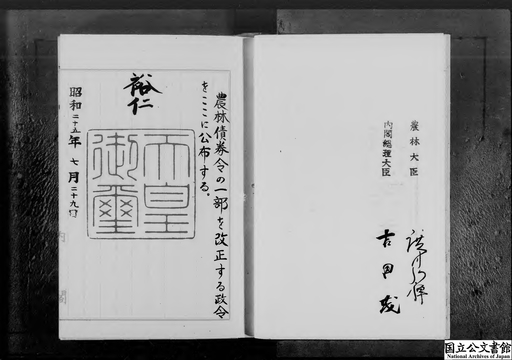 農林大臣
廣川弘禅
内閣総理大臣
吉田茂
農林債券令の一部を改正する政令
をここに公布する。
裕仁
天皇御璽
昭和二十五年七月二十九日
内
閣
国立公文書館
National Archives of Japan